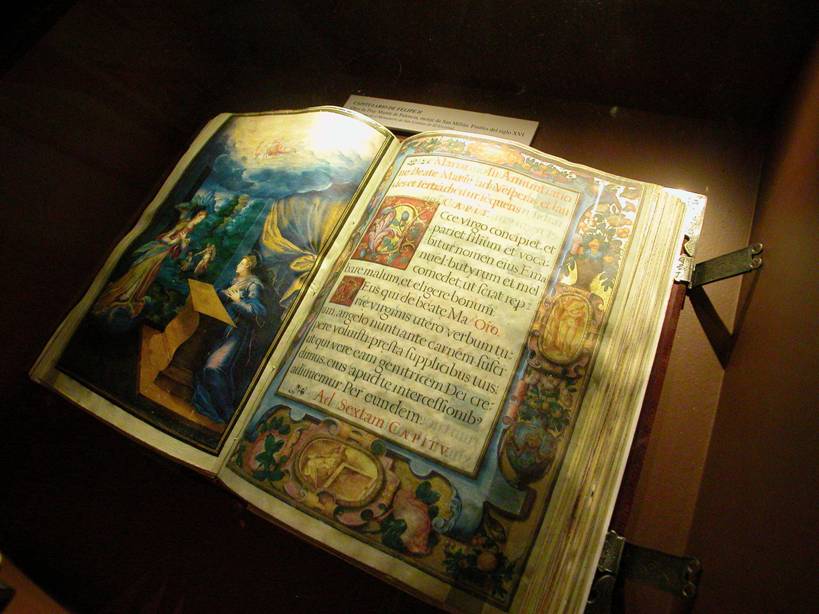 CAPITULARIO DE FELIPE II
Obra de Fray Martín de Palencia, monje de San Millán. Finales del siglo XVI
In Annuntiatio
ne Beate Marie ad Vesperas, et lau
des et tertia
CAPIT.
Cce virgo concipiet, et
pariet filium et voca
bitur nomen eius Ema
nuel. butyrum et mel
comedet, ut sciat rep:
bare malum, et eligere bonum.
Eus qui de beate Ma Oro.
rie virginis utero verbum tu:
um, angelo nuntiante carnem susci
pere voluisti: presta supplicibus tuis:
ut qui vere eam genitricem Dei cre:
dimus, eius apud te intercessionib9
adiuvemur. Per eundem.
Ad Sextam CAPITV